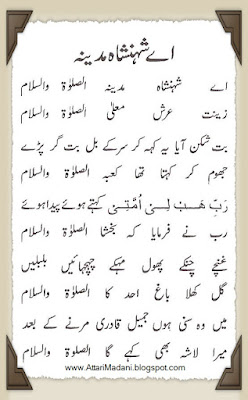 اے شہنشاہ مدینہ
اے شہنشاہ مدینہ الصلوٰۃ والسلام
زینت عرش معلیٰ الصلوٰۃ والسلام
بت شکن آیا یہ کہہ کر سر کے بل بت گر پڑے
جھوم کر کہتا تھا کعبہ الصلوٰۃ والسلام
رَبِّ هَبْ لِىْ اُمَّتِىْ کہتے ہوئے پیدا ہوئے
رب نے فرمایا کہ بخشا الصلوٰۃ والسلام
غنچے چٹکے پھول مہکے چہچہائیں بلبلیں
گل کھلا باغ احد کا الصلوٰۃ والسلام
میں وہ سنی ہوں جمیل قادری مرنے کے بعد
میرا لاشہ بھی کہے گا الصلوٰۃ والسلام
www.AttariMadani.blogspot.com